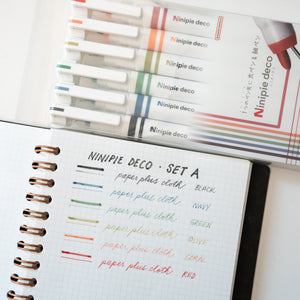 Ninipie deco
Ninipie deco
Ninipie deco
Ninipie deco
Ninipie deco
Ninipie deco
Ninipie deco
NINIPIE DECO · SET A
paper plus cloth BLACK
paper plus cloth NAVY
paper plus cloth GREEN
paper plus cloth OLIVE
paper plus cloth CORAL
paper plus cloth RED